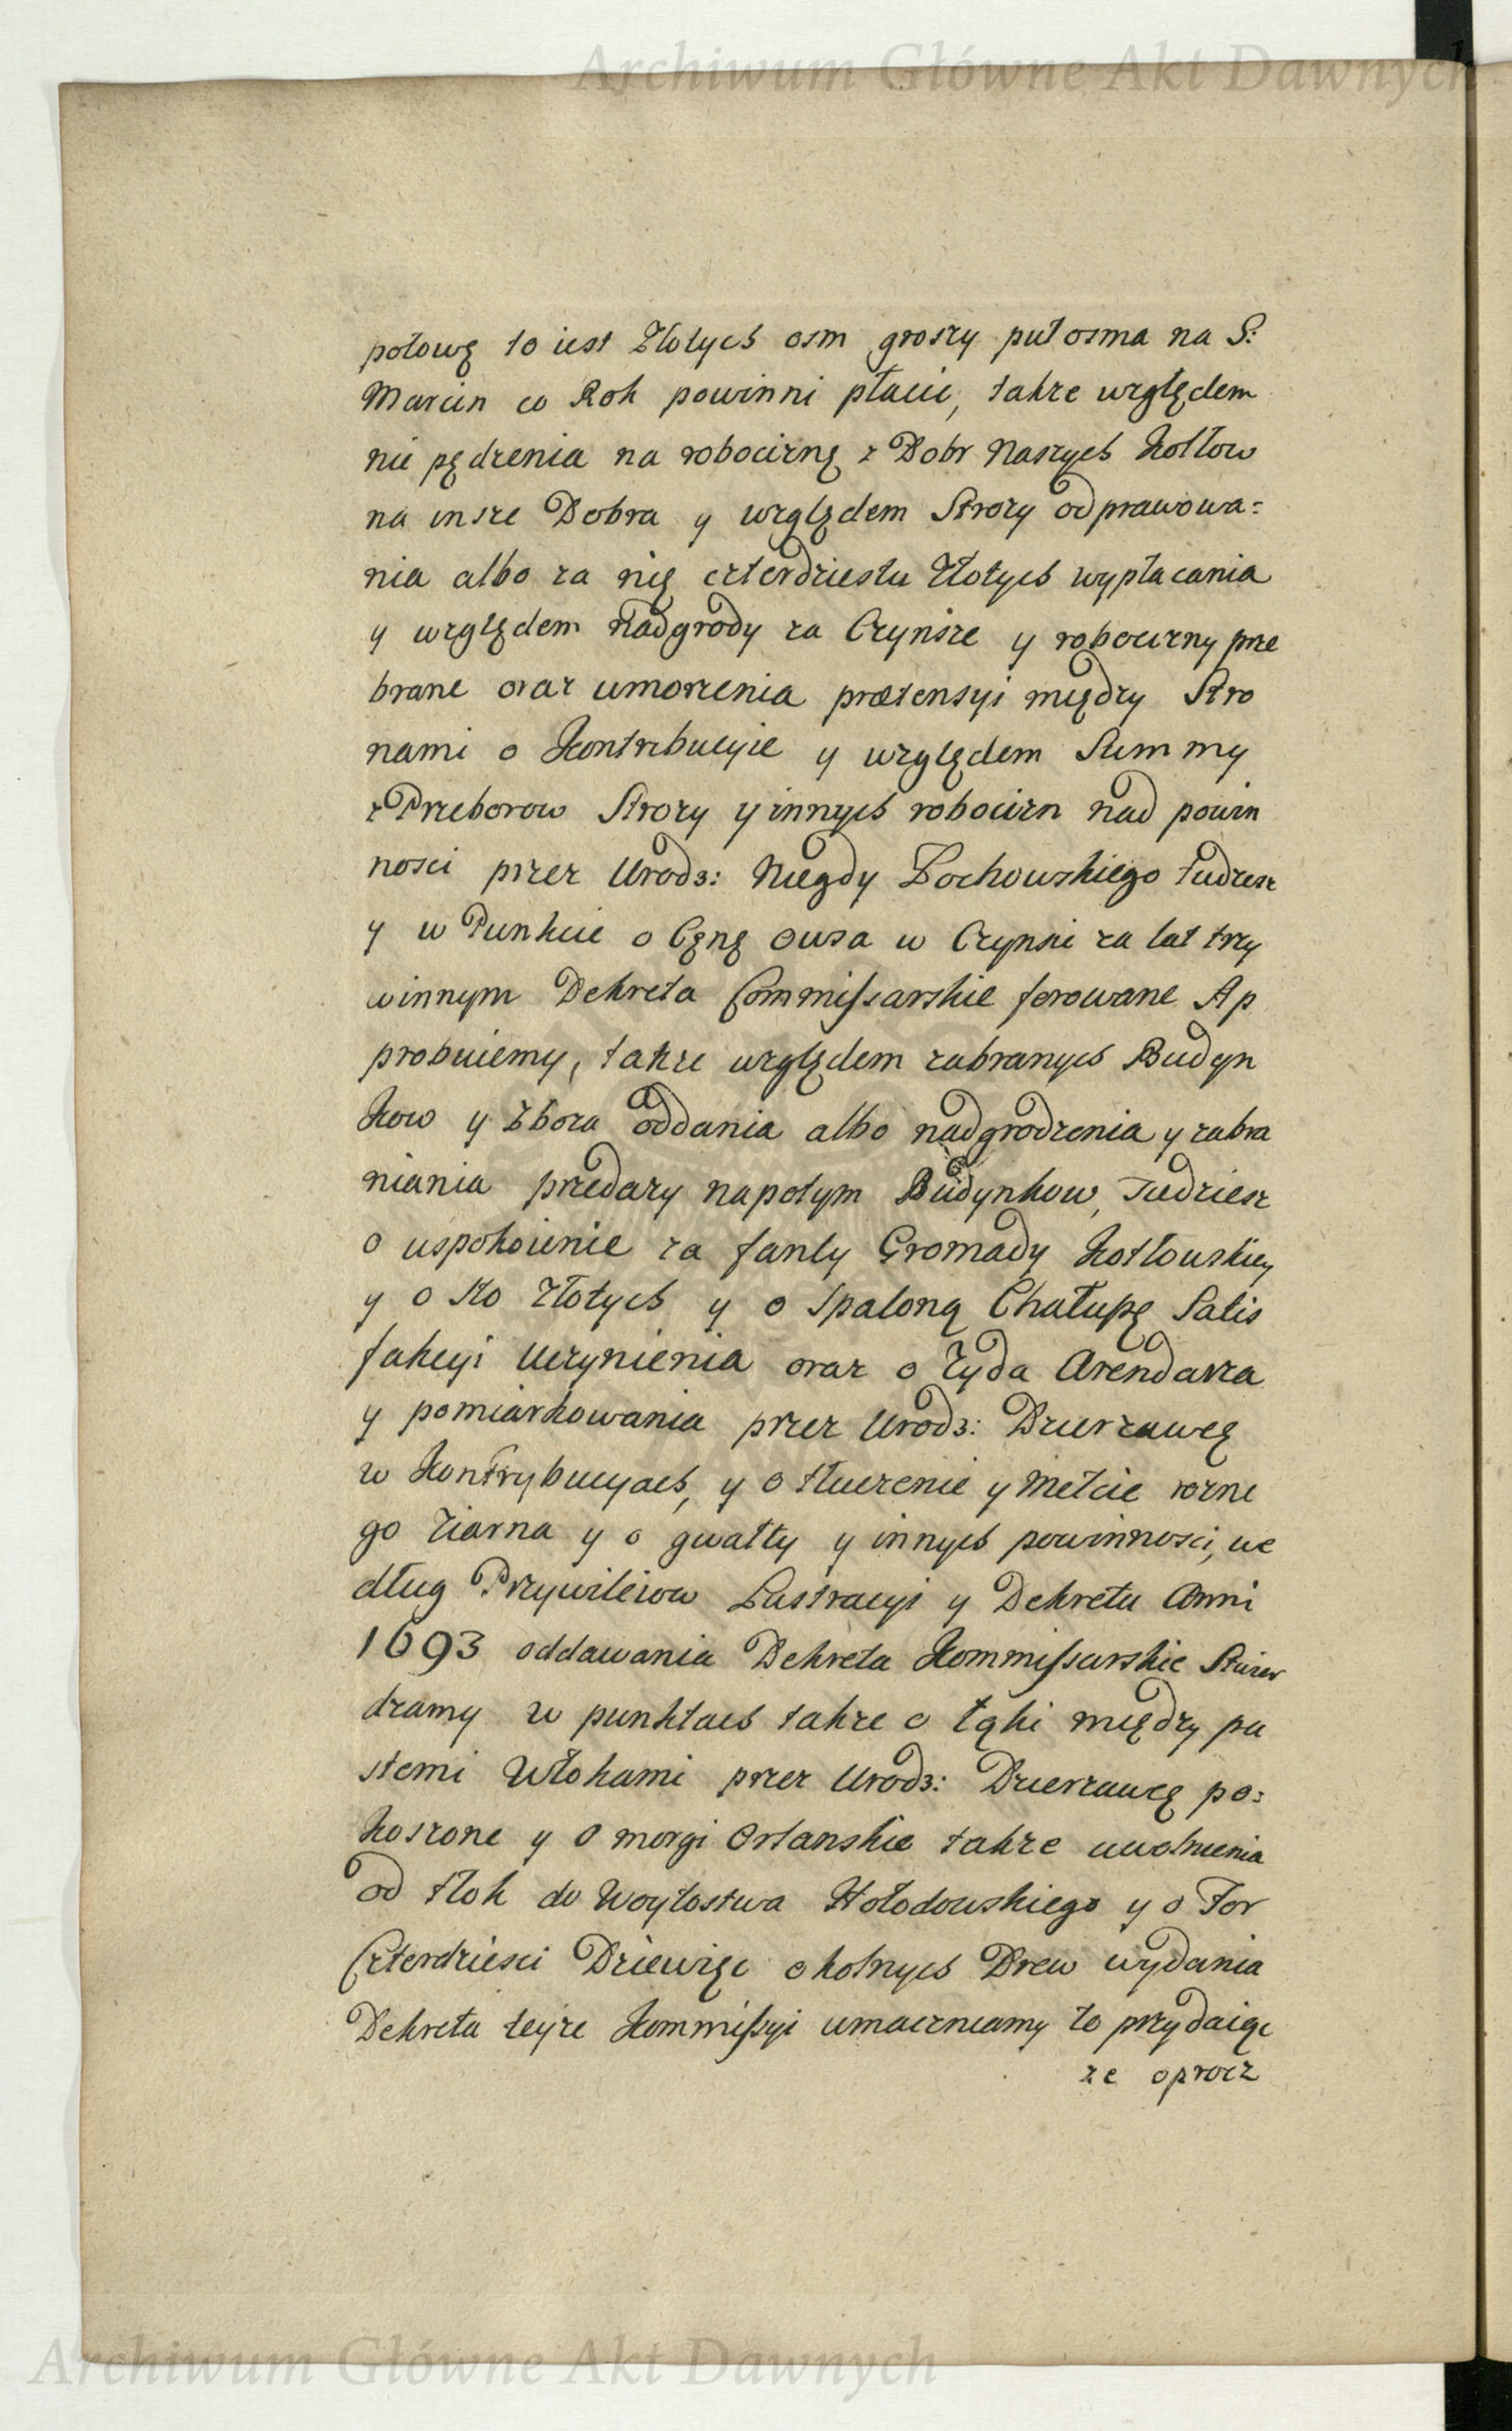 Archiwum Główne Akt Dawnych
połowę to iest Złotych osm groszy puł osma na S:
Marcin co Rok powinni płacic, takze względem
nie pędzenia na robociznę z Dobr Naszych Kotłow
na insze Dobra y względem Strozy odprawowa=
nia albo za nię czterdziestu Złotych wypłacania
y względem nadgrody za Czynsze y robocizny prze
brane oraz umorzenia prætensyi między Stro
nami o Kontribucyie y względem Summy
z Przeborow Strozy y innych robocizn nad powin
nosci przez Urodz: Niegdy Zochowskiego tudziesz
y w Punkcie o Cęnę owsa w Czynsie za lat trzy
winnym Dekreta Commissarskie ferowane Ap
probuiemy, takze względem zabranych Budyn
kow y Zboza oddania albo nadgrodzenia y zabra
niania przedazy napotym Budynkow, Tudziesz
o uspokoienie za fanty Gromady Kotłowskiey
y o Sto Złotych y o Spaloną Chałupę Satis
fakcyi Uczynienia oraz o Zyda Arendarza
y pomiarkowania przez Urodz: Dzierzawcę
w Kontrybucyach, y o tłuczenie y Mełcie rozne
go Ziarna y o gwałty y innych powinnosci, we
dług Przywileiow Lustracyi y Dekretu Anni
1693 oddawania Dekreta Kommissarskie Stwier
dzamy w punktach takze o łąki między pu
stemi Włokami przez Urodz: Dzierzawcę po=
koszone y o morgi Orlanskie takze uwolnienia
od tłok do Woytostwa Hołodowskiego y o For
Czterdziesci Dziewięc okolnych Drew wydania
Dekreta teyze Kommissyi umacniamy to przydaiąc
ze oprocz
Archiwum Główne Akt Dawnych